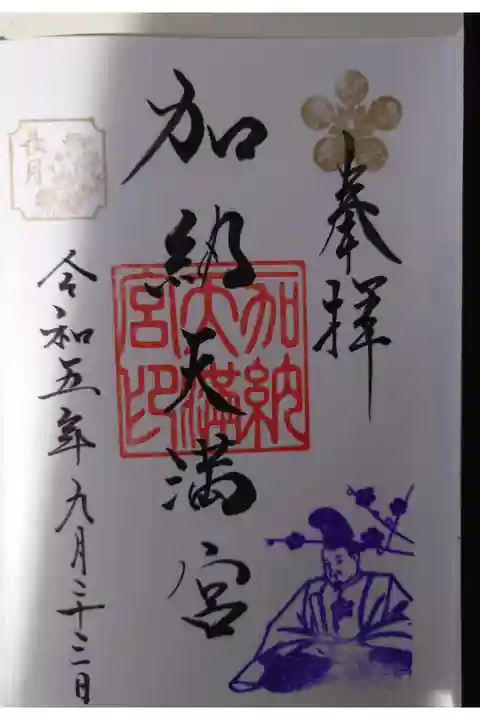 奉拝
加納天満宮
加納天満宮印
令和五年九月二十二日